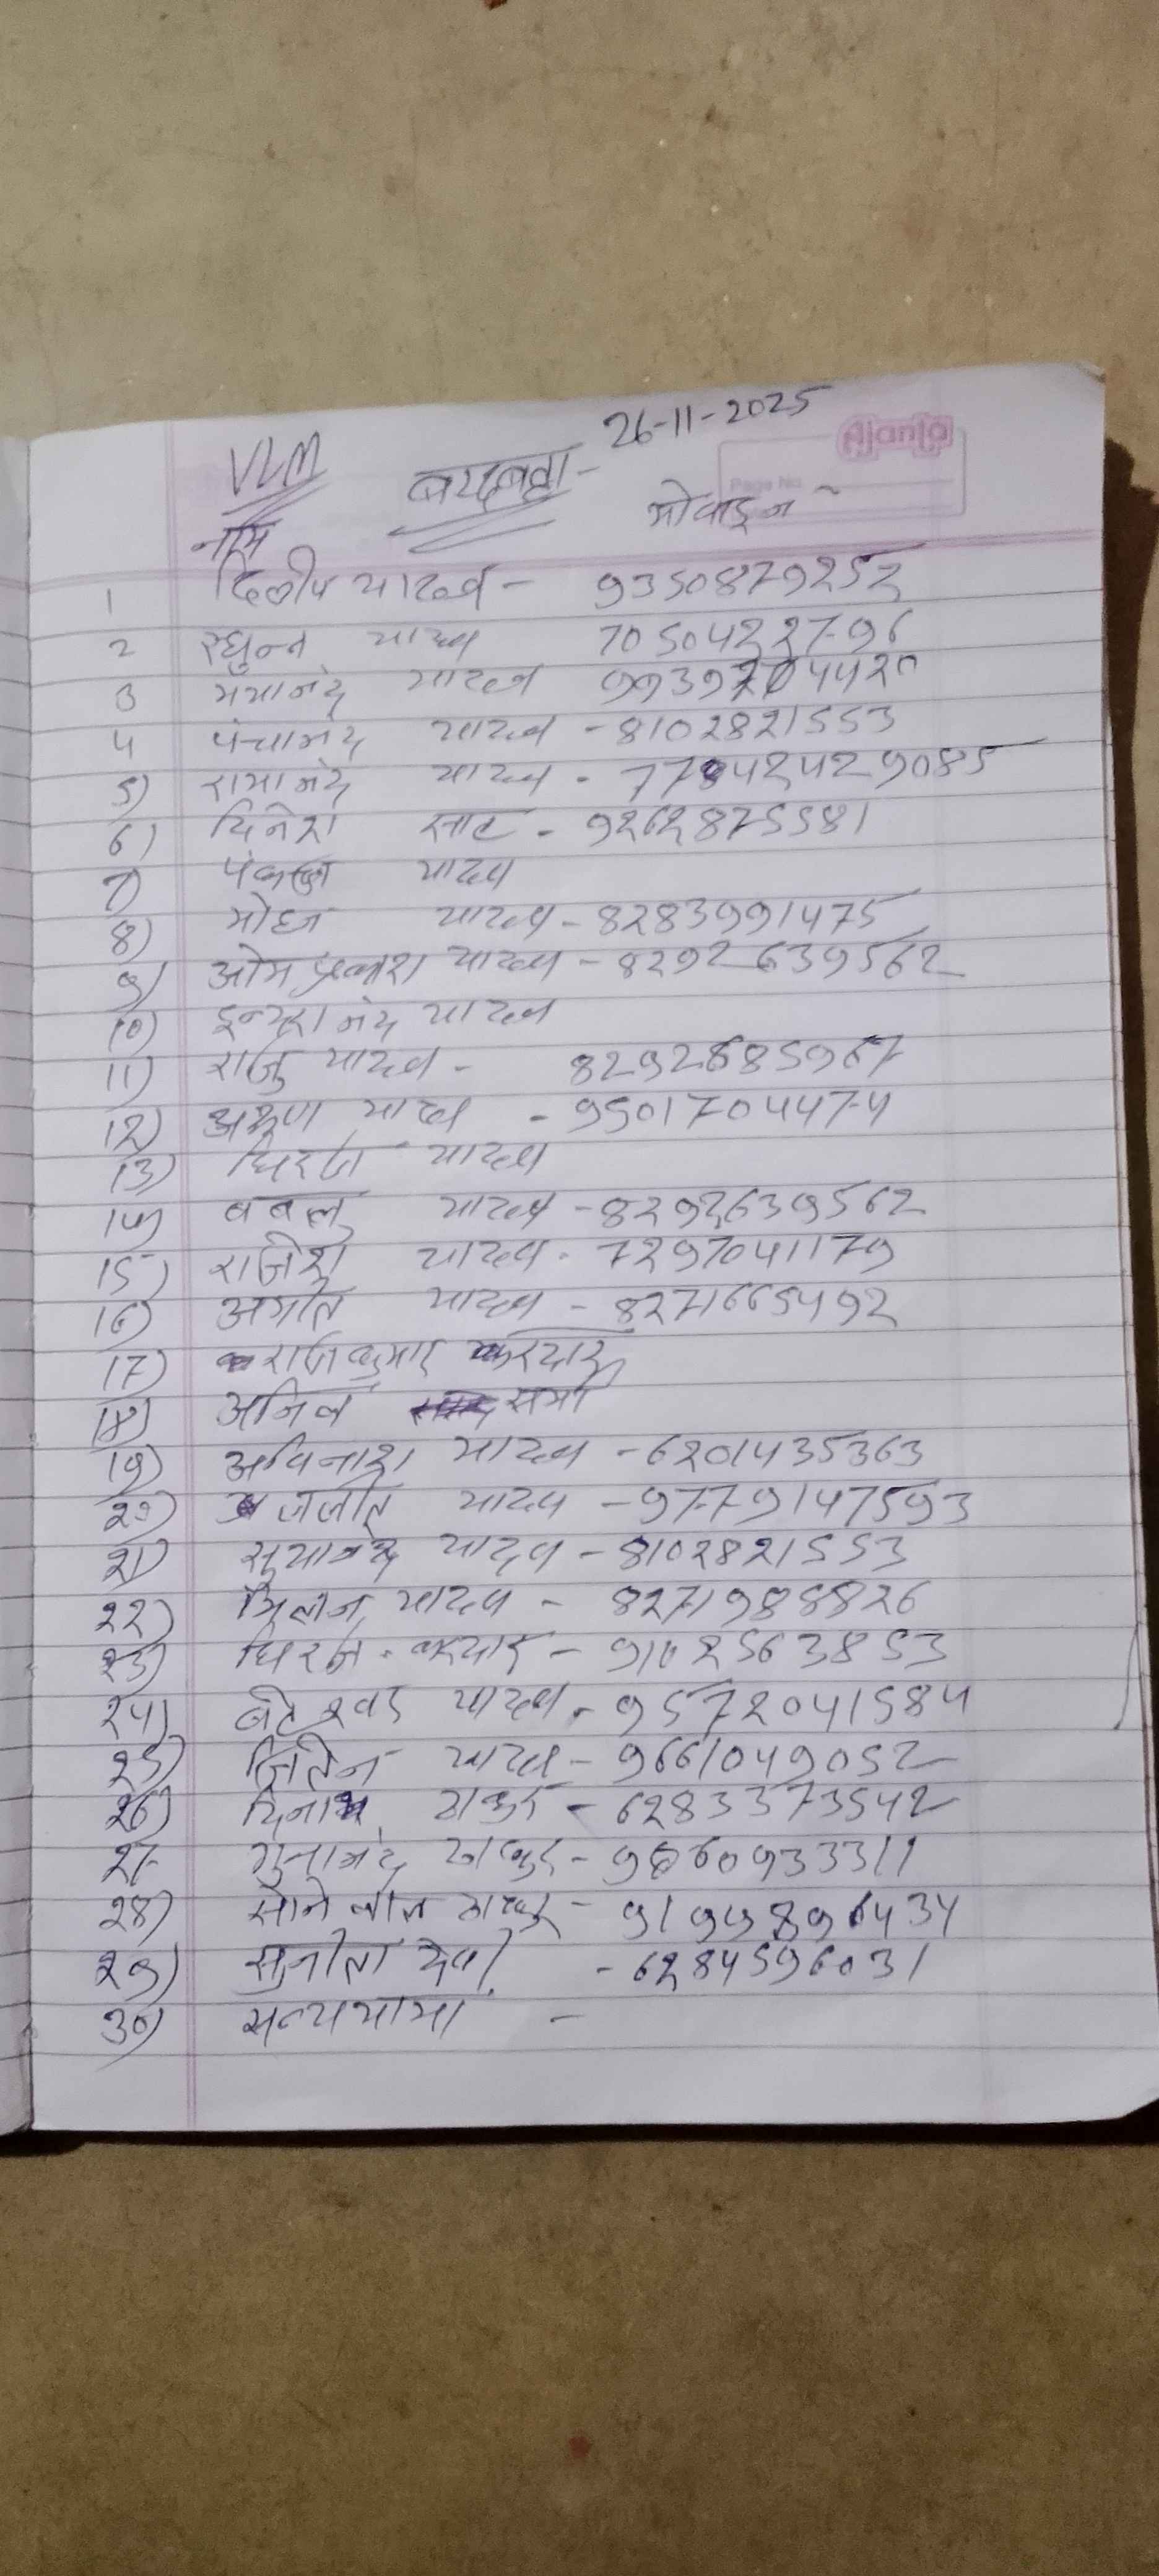 26-11-2025
Ajanta
Page No
VLM
नाम मोवाइन
1 दिलीप यादव - 9350879252
2 रघुन्न यादव 7050422796
3 यादव
4 पंचानंद यादव - 8102821553
5) रामानंद यादव - 77842429085
6) दिनेश साह - 9262875581
7) पंकज यादव
8) यादव - 8283991475
9) ओम प्रकाश यादव - 82926639562
10) यादव
11) राजु यादव - 8292685967
12) अरूण यादव - 9501704474
13) धिरज यादव
14) बबलु यादव - 8292639562
15) राजेश यादव - 7297041179
16) अमीत यादव - 8271665492
17) राजकुमार
18) अनिल समा
19) अविनाश यादव - 6201435363
20) यादव - 9779147593
21) यादव - 8102821553
22) मिलन यादव - 8271988826
23) धिरज - 9102563853
24) यादव - 9572041584
25) जितेन यादव - 9661049052
26) ठाकुर - 6283373542
27 ठाकुर
28) सोने लाल ठाकुर
29) सुनीता देवी - 6284596031
30) सत्यभामा -